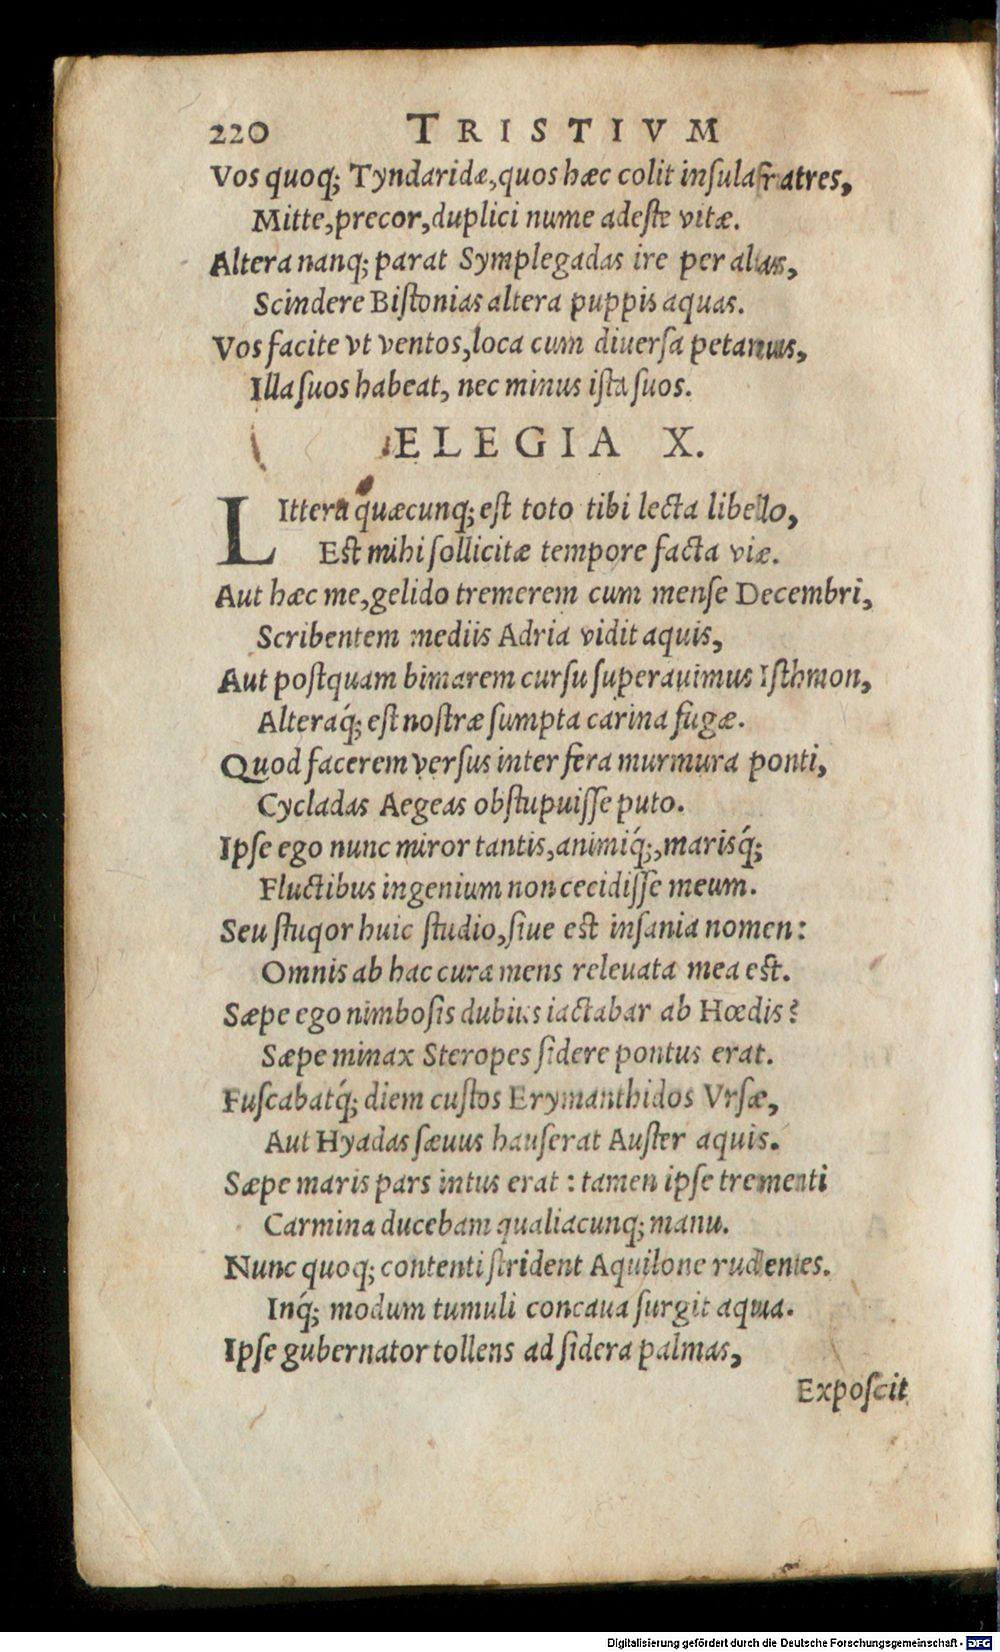 220 TRISTIVM
Vos quoq; Tyndaridæ, quos hæc colit insula fratres,
Mitte, precor, duplici nume adeste vitæ.
Altera nanq; parat Symplegadas ire per altas,
Scindere Bistonias altera puppis aquas.
Vos facite vt ventos, loca cum diuersa petamus,
Illa suos habeat, nec minus ista suos.
ELEGIA X.
LIttera quæcunq; est toto tibi lecta libello,
Est mihi sollicitæ tempore facta viæ.
Aut hæc me, gelido tremerem cum mense Decembri,
Scribentem mediis Adria vidit aquis,
Aut postquam bimarem cursu superauimus Isthmon,
Alteraq́; est nostræ sumpta carina fugæ.
Quod facerem versus inter fera murmura ponti,
Cycladas Aegeas obstupuisse puto.
Ipse ego nunc miror tantis, animiq́;, marisq́;
Fluctibus ingenium non cecidisse meum.
Seu stuqor huic studio, siue est insania nomen:
Omnis ab hac cura mens releuata mea est.
Sæpe ego nimbosis dubius iactabar ab Hœdis?
Sæpe minax Steropes sidere pontus erat.
Fuscabatq́; diem custos Erymanthidos Vrsæ,
Aut Hyadas sæuus hauserat Auster aquis.
Sæpe maris pars intus erat: tamen ipse trementi
Carmina ducebam qualiacunq; manu.
Nunc quoq; contenti strident Aquilone rudentes.
Inq́; modum tumuli concaua surgit aqua.
Ipse gubernator tollens ad sidera palmas,
Exposcit
Digitalisierung gefördert durch die Deutsche Forschungsgemeinschaft - DFG